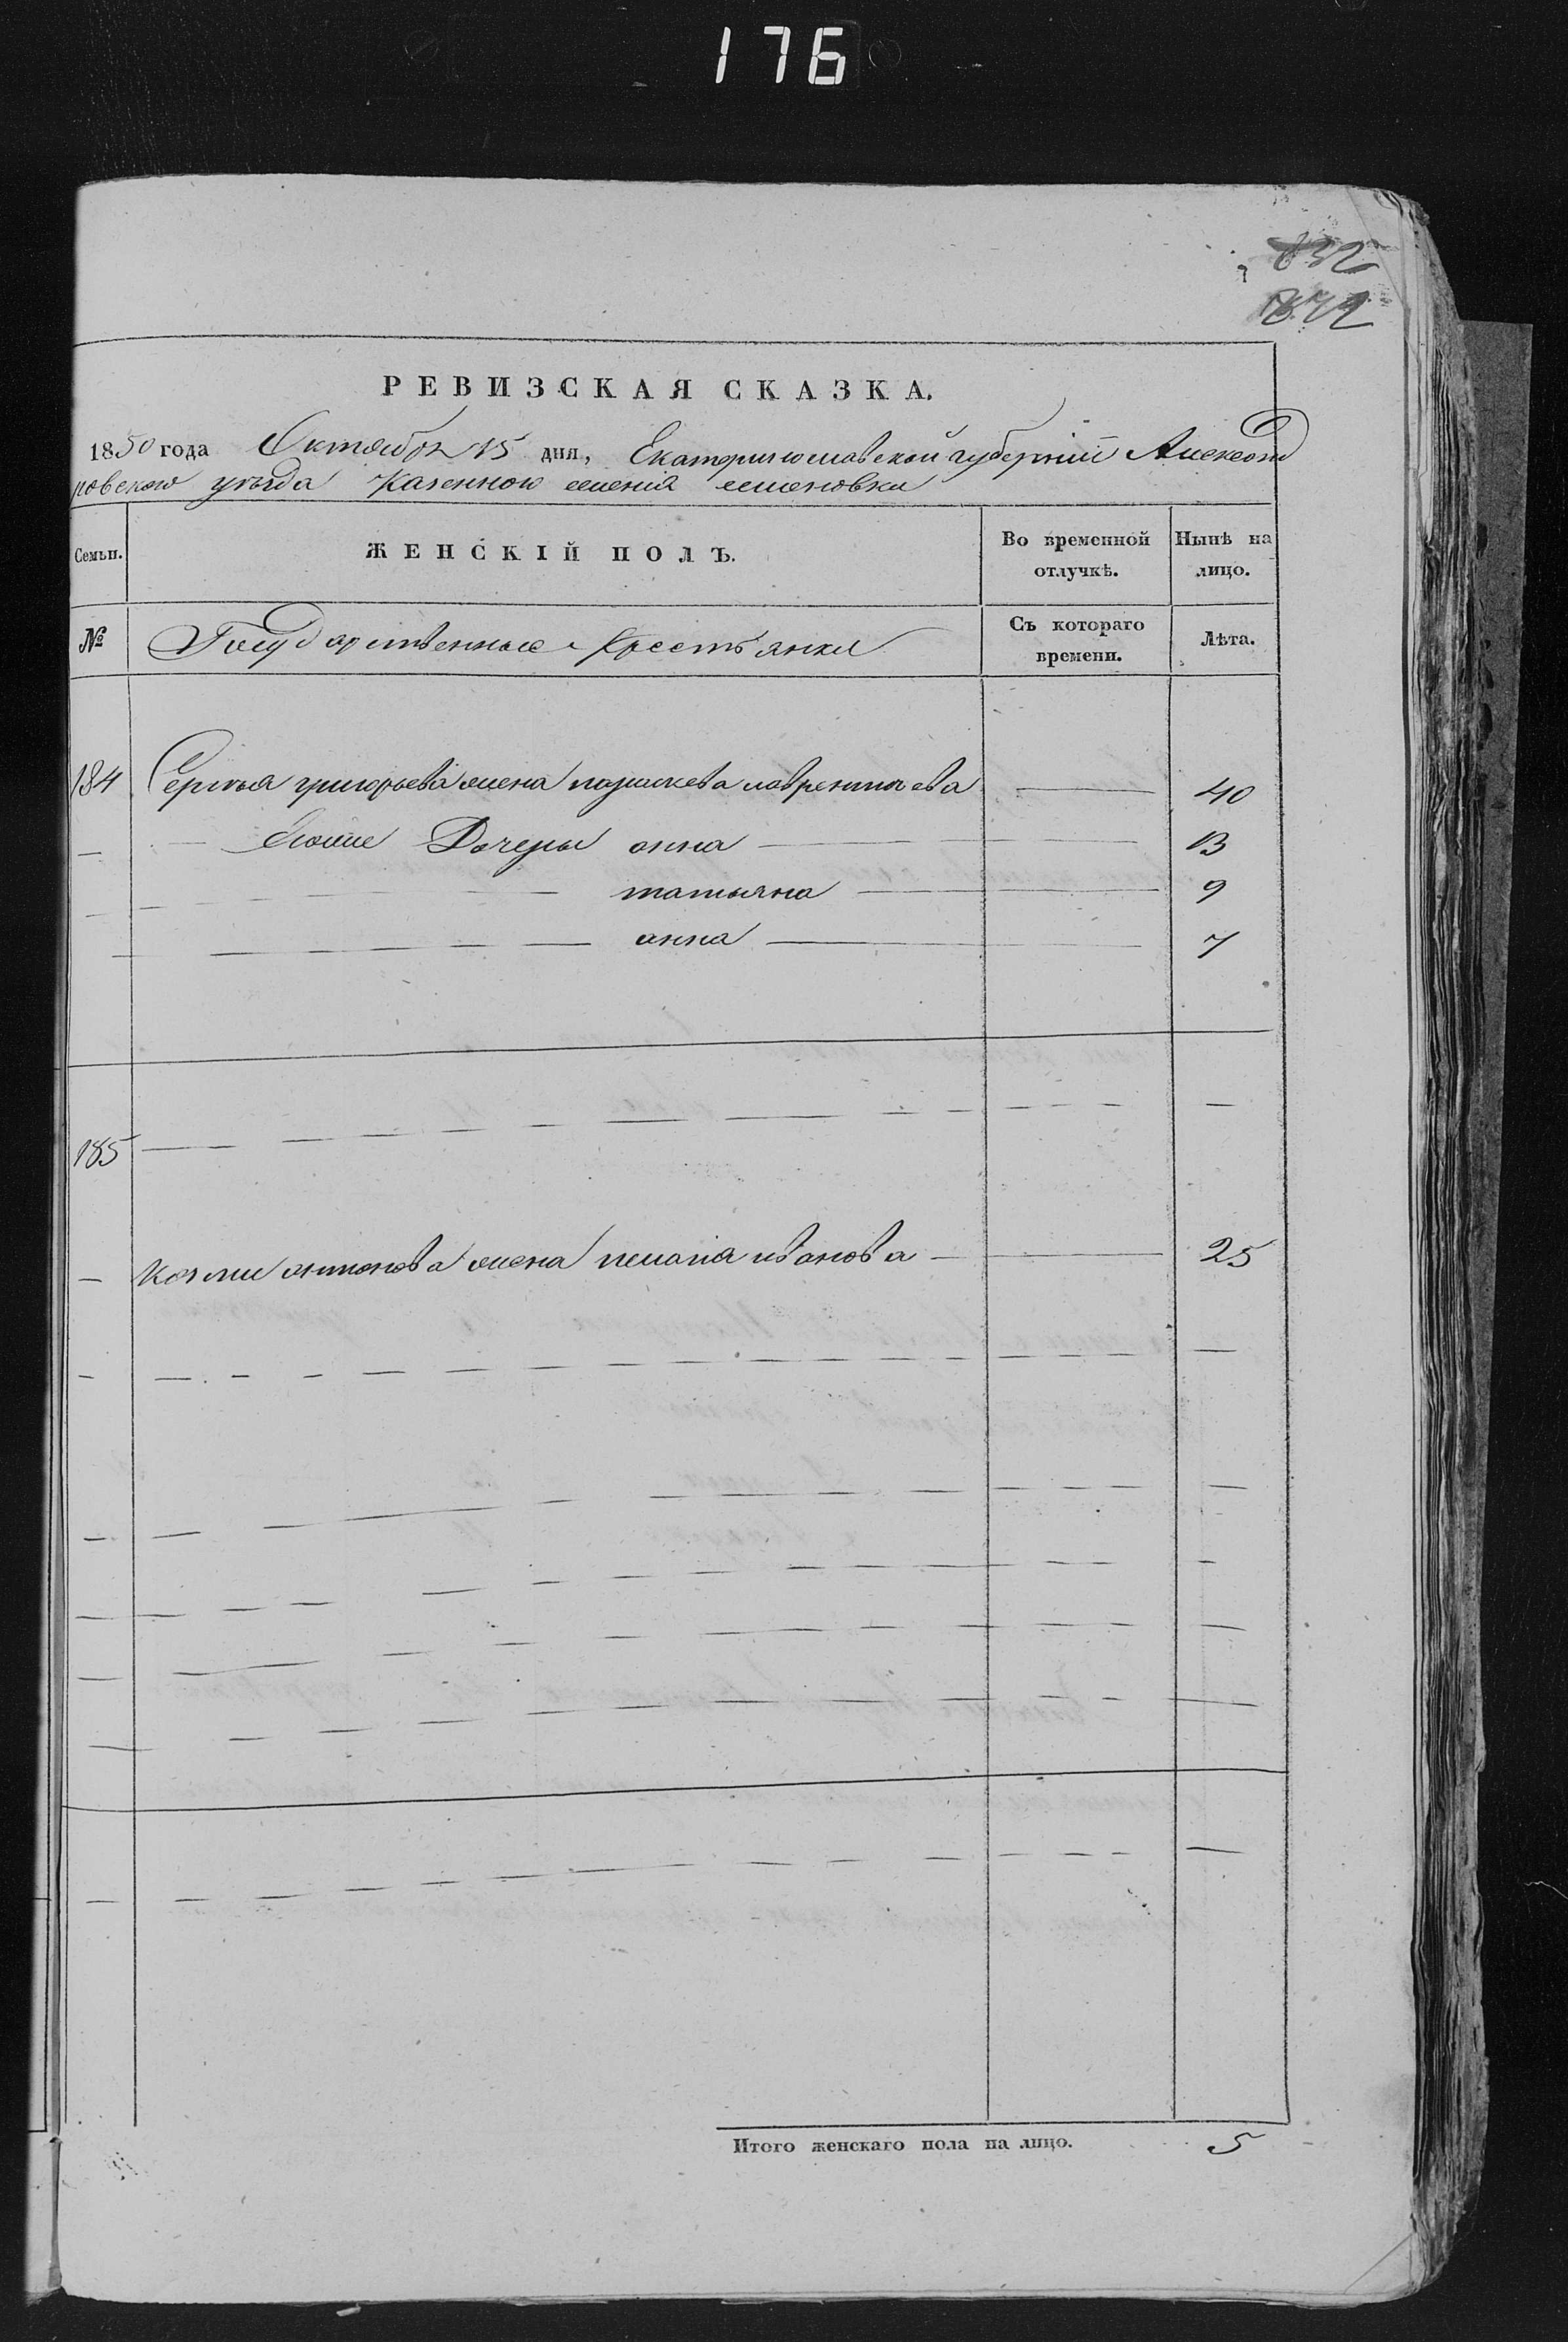 176
832
872
РЕВИЗСКАЯ СКАЗКА.
1850 года Октября 15 дня, Екатеринославской губернии Александ
ровского уѣзда Казенного селения семеновки
Семьи. ЖЕНСКІЙ ПОЛЪ. Во временной отлучкѣ. Нынѣ на лицо.
№ Государственные Крестьянки Съ котораго времени. Лѣта.
184 Сергѣя григорьева жена параскева лаврентьева 40
— Егоже Дочеры анна 13
татьяна 9
анна 7
185
— Козми антонова жена пелагія иванова 25
Итого женскаго пола на лицо. 5